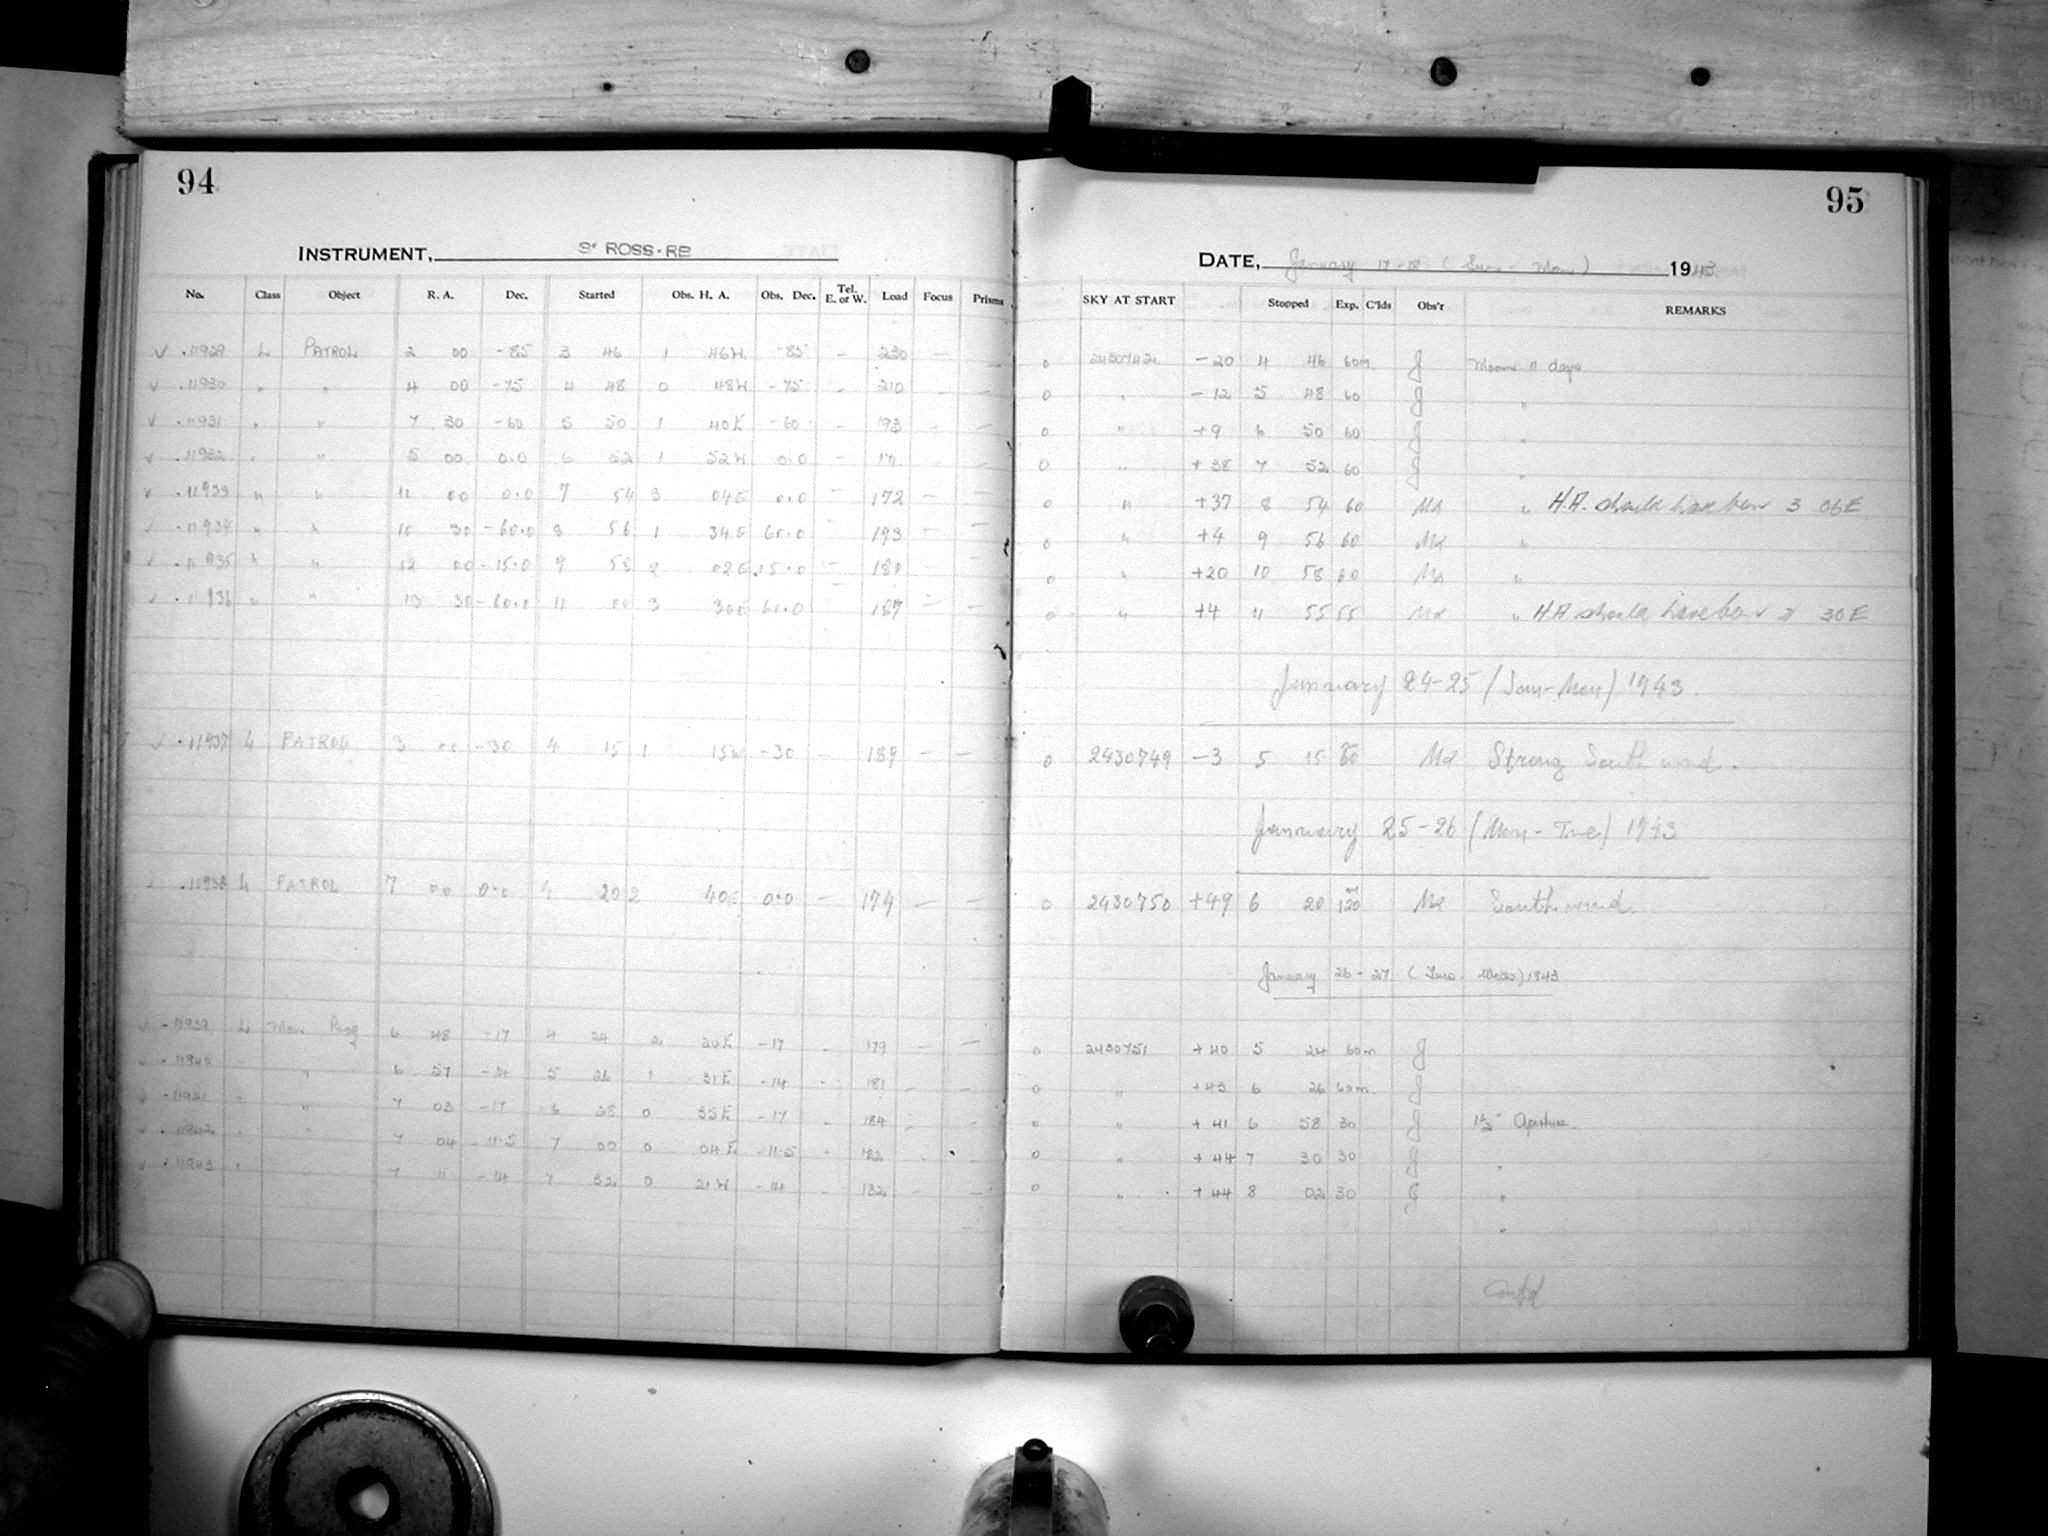 94
INSTRUMENT, 3" ROSS-RB
No. Class Object R. A. Dec. Started Obs. H. A. Obs. Dec. Tel. E. or W. Load Focus Prisms
√ .11929 L PATROL 2 00 -85 3 46 1 46W -85 - 230 - -
√ .11930 " " 4 00 -75 4 48 0 48W -75 - 210 - -
√ .11931 " " 7 30 -60 5 50 1 40E -60 - 193 - -
√ .11932 " " 5 00 0.0 6 52 1 52W 0.0 - 171 - -
√ .11933 " " 11 00 0.0 7 54 3 04E 0.0 - 172 - -
√ .11934 " " 10 30 -60.0 8 56 1 34E 60.0 - 193 - -
√ .11935 " " 12 00 -15.0 9 58 2 02E 15.0 - 180 - -
√ .11936 " " 13 30 -60.0 11 00 3 30E 60.0 187 - -
√ .11937 L PATROL 3 00 -30 4 15 1 15W -30 - 189 - -
.11938 L PATROL 7 00 0.0 4 20 2 40E 0.0 - 174 - -
√ .11939 L Mon. Prog 6 48 -17 4 24 2 24E -17 - 179 - -
.11940 " " 6 57 -14 5 26 1 31E -14 - 181 - -
.11941 " " 7 03 -17 6 28 0 35E -17 - 184 - -
√ .11942 " " 7 04 -11.5 7 00 0 04E -11.5 - 182 - -
√ .11943 " " 7 11 -14 7 32 0 21W -14 - 182 - -
95
DATE, January 17-18 (Sun-Mon) 1943
SKY AT START Stopped Exp. C'lds Obs'r REMARKS
0 2430742 -20 4 46 60m J Moon 11 days
0 " -12 5 48 60 J "
0 " +9 6 50 60 J "
0 " +38 7 52 60 J "
0 " +37 8 54 60 Md " H.A. should have been 3 06E
0 " +4 9 56 60 Md "
0 " +20 10 58 60 Md "
0 " +4 11 55 55 Md " HA should have been 3 30E
January 24-25 (Sun-Mon) 1943.
0 2430749 -3 5 15 60 Md Strong South wind.
January 25-26 (Mon-Tue) 1943
0 2430750 +49 6 20 120 Md South wind.
January 26-27 (Tues. Weds) 1943
0 2430751 +40 5 24 60m J
0 " +43 6 26 60m. J
0 " +41 6 58 30 J 1½" Aperture.
0 " +44 7 30 30 J "
0 " +44 8 02 30 J "
"
Contd